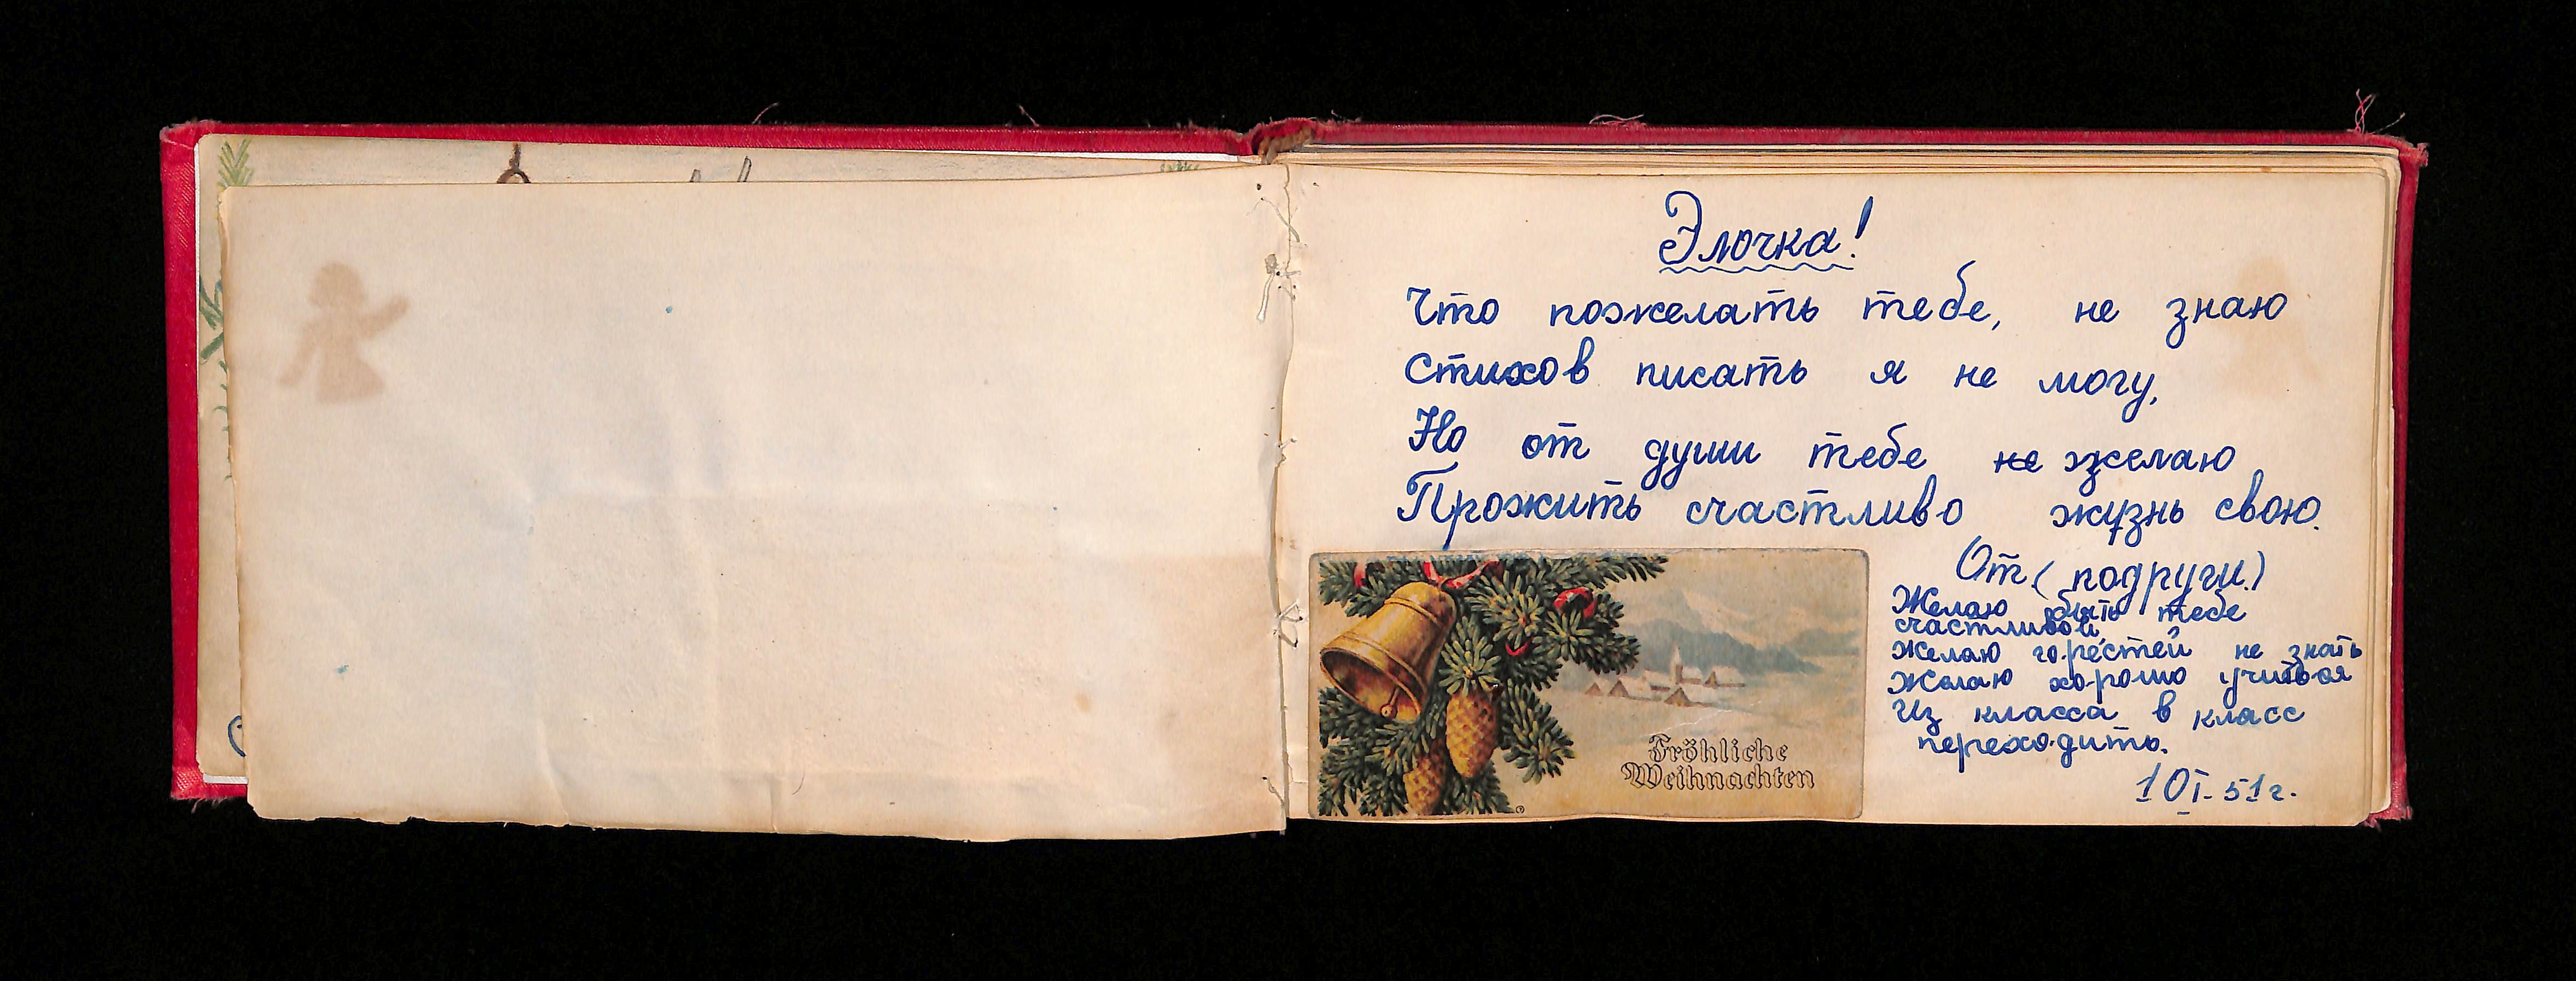 Элочка!
Что пожелать тебе, не знаю
стихов писать я не могу,
Но от души тебе не желаю
Прожить счастливо жизнь свою.
От (подруги)
Желаю быть тебе
счастливой,
Желаю горестей не знать
Желаю хорошо учится
Из класса в класс
переходить.
10 I. 51 г.
Fröhliche
Weihnachten